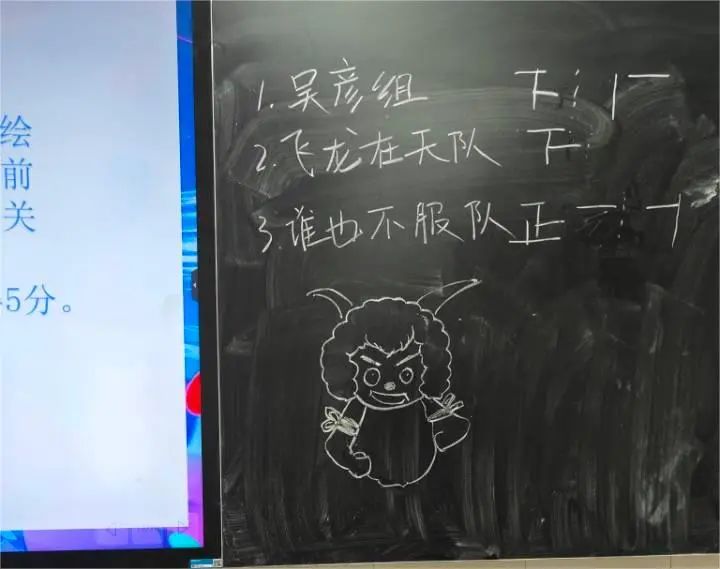 绘
前
关
5分。
1.吴彦组 下
2.飞龙在天队 下
3.谁也不服队 正一